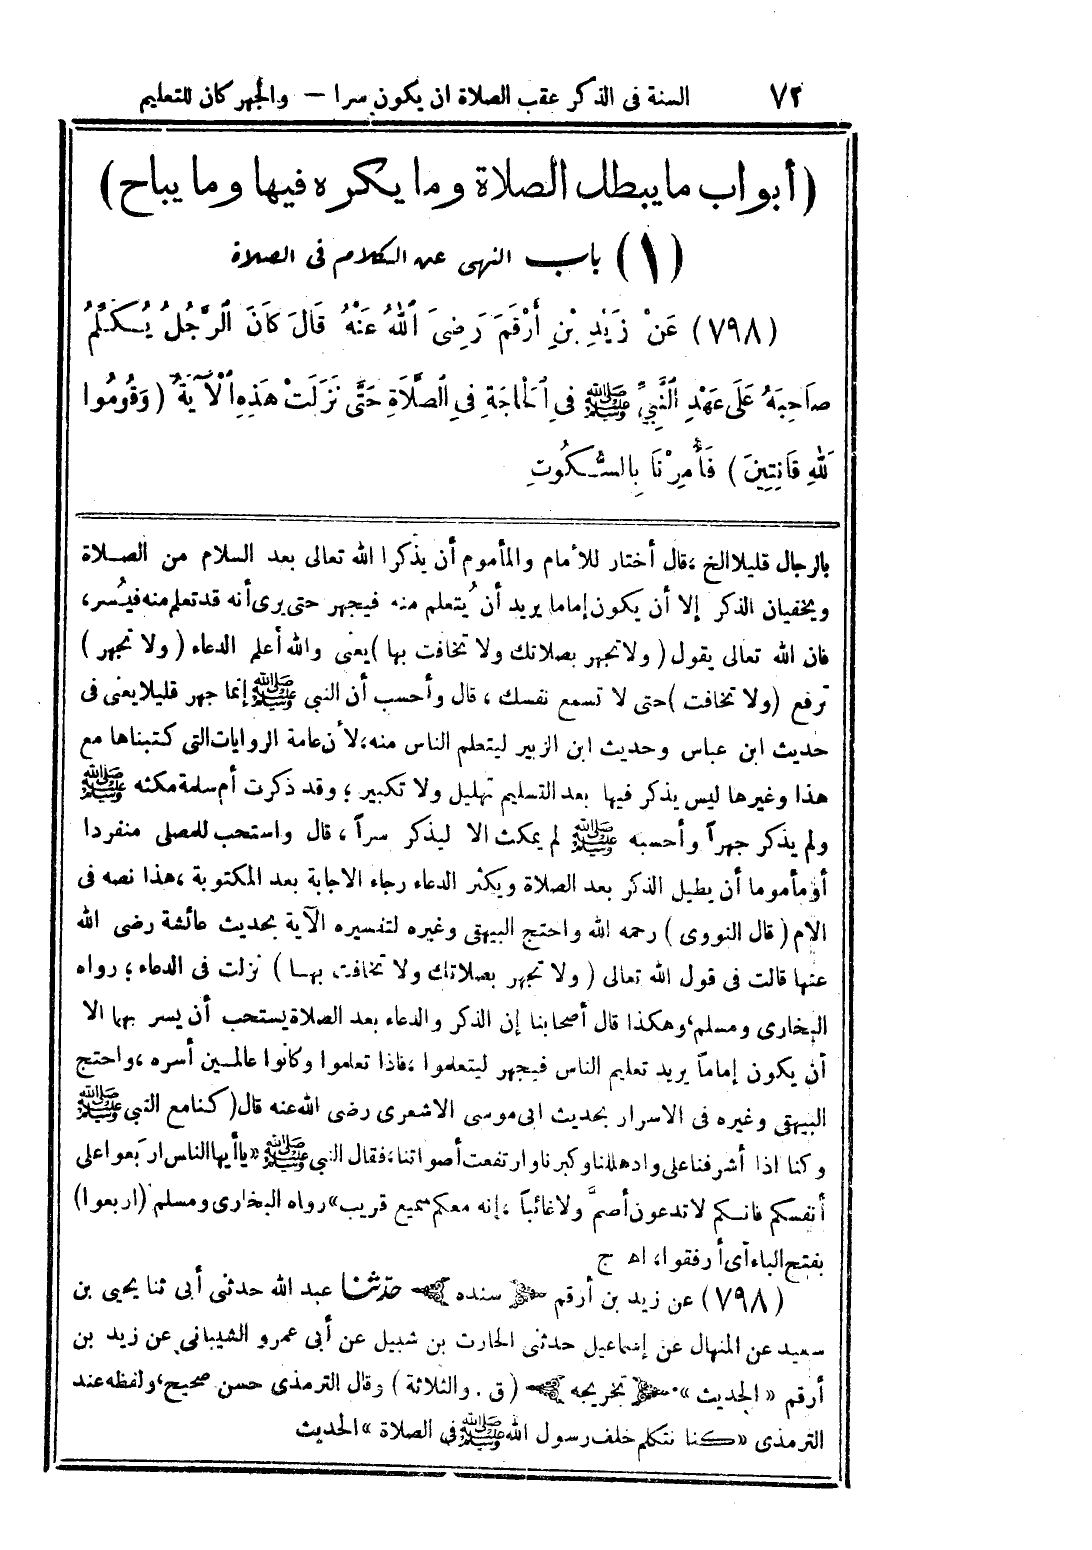 ٧٢ السنة فى الذكر عقب الصلاة ان يكون سرا – والجهر كان للتعليم
(أبواب ما يبطل الصلاة وما يكره فيها وما يباح)
(١) باب النهى عن الكلام فى الصلاة
(٧٩٨) عَنْ زَيْدِ بْنِ أَرْقَمَ رَضِىَ اللهُ عَنْهُ قَالَ كَانَ الرَّجُلُ يُكَلِّمُ
صَاحِبَهُ عَلَى عَهْدِ النَّبِىِّ ﷺ فِى الْحَاجَةِ فِى الصَّلَاةِ حَتَّى نَزَلَتْ هَذِهِ الْآيَةُ (وَقُومُوا
لِلهِ قَانِتِينَ) فَأُمِرْنَا بِالسُّكُوتِ
بالرجال قليلا الخ ، قال أختار للأمام والمأموم أن يذكرا الله تعالى بعد السلام من الصلاة
ويخفيان الذكر إلا أن يكون إماما يريد أن يُتعلم منه فيجهر حتى يرى أنه قد تعلم منه فيُسر،
فان الله تعالى يقول (ولا تجهر بصلاتك ولا تخافت بها) يعنى والله أعلم الدعاء (ولا تجهر)
ترفع (ولا تخافت) حتى لا تسمع نفسك ، قال وأحسب أن النبي ﷺ إنما جهر قليلا يعنى فى
حديث ابن عباس وحديث ابن الزبير ليتعلم الناس منه، لأن عامة الروايات التى كتبناها مع
هذا وغيرها ليس يذكر فيها بعد التسليم تهليل ولا تكبير ؛ وقد ذكرت أم سلمة مكثه ﷺ
ولم يذكر جهراً وأحسبه ﷺ لم يمكث الا ليذكر سراً ، قال واستحب للمصلى منفردا
أو مأموما أن يطيل الذكر بعد الصلاة ويكثر الدعاء رجاء الاجابة بعد المكتوبة ، هذا نصه فى
الام (قال النووى) رحمه الله واحتج البيهقى وغيره لتفسيره الآية بحديث عائشة رضى الله
عنها قالت فى قول الله تعالى (ولا تجهر بصلاتك ولا تخافت بها) نزلت فى الدعاء ؛ رواه
البخارى ومسلم، وهكذا قال أصحابنا إن الذكر والدعاء بعد الصلاة يستحب أن يسر بهما الا
أن يكون إماماً يريد تعليم الناس فيجهر ليتعلموا ، فاذا تعلموا وكانوا عالمين أسره ، واحتج
البيهقى وغيره فى الاسرار بحديث ابى موسى الاشعرى رضى الله عنه قال (كنا مع النبي ﷺ
وكنا اذا أشرفنا على واد هللنا وكبرنا وارتفعت أصواتنا، فقال النبي ﷺ «يا أيها الناس اربعوا على
أنفسكم فانكم لا تدعون أصمَّ ولا غائباً ، إنه معكم سميع قريب» رواه البخارى ومسلم (اربعوا)
بفتح الباء أى أرفقوا، اهـ ج
(٧٩٨) عن زيد بن أرقم سنده حدّثنا عبد الله حدثنى أبى ثنا يحيى بن
سعيد عن المنهال عن إسماعيل حدثنى الحارث بن شبيل عن أبى عمرو الشيبانى عن زيد بن
أرقم «الحديث» تخريجه (ق . والثلاثة) وقال الترمذى حسن صحيح، ولفظه عند
الترمذى «كنا نتكلم خلف رسول الله ﷺ فى الصلاة» الحديث